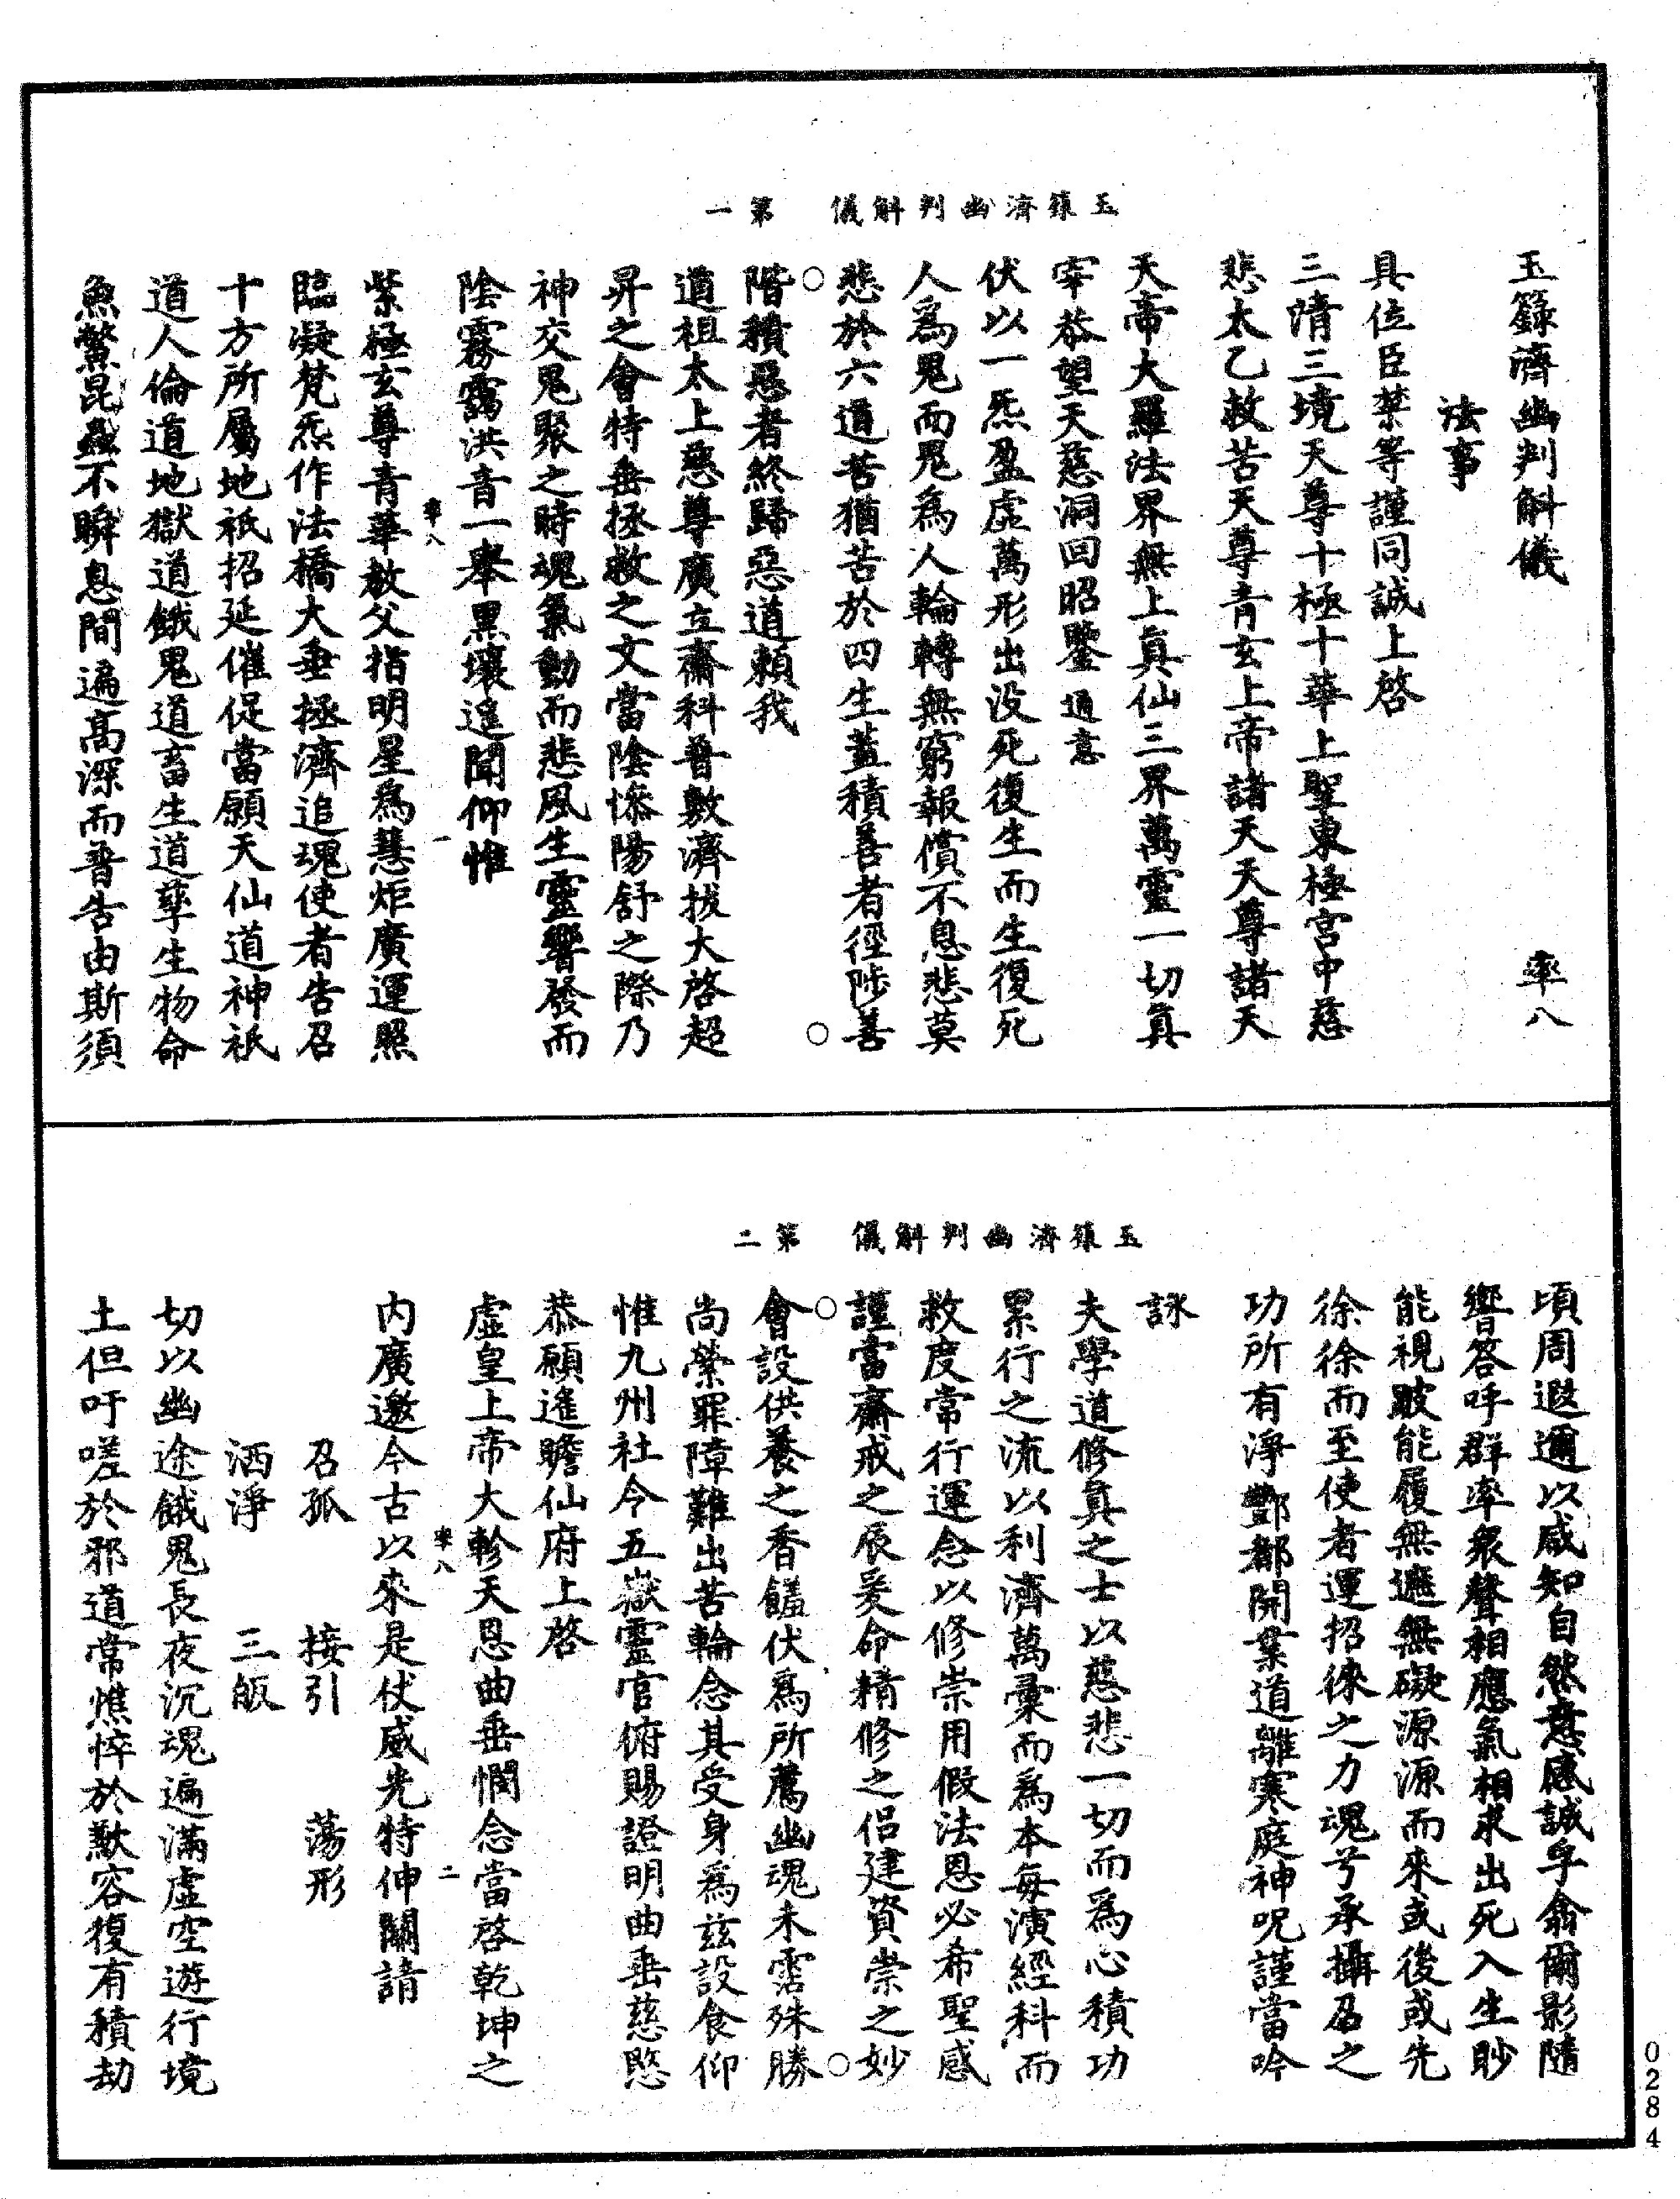 玉籙濟幽判斛儀　第一
玉籙濟幽判斛儀　率八
法事
具位臣某等謹同誠上啓
三清三境天尊十極十華上聖東極宮中慈
悲太乙救苦天尊青玄上帝諸天天尊諸天
天帝大羅法界無上真仙三界萬靈一切真
宰恭望天慈洞回昭鑒通意
伏以一炁盈虛萬形出没死復生而生復死
人爲鬼而鬼爲人輪轉無窮報償不息悲莫
悲於六道苦猶苦於四生蓋積善者徑陟善
階積惡者終歸惡道賴我
道祖太上慈尊廣立齋科普敷濟拔大啓超
昇之會特垂拯救之文當陰慘陽舒之際乃
神交鬼聚之時魂氣動而悲風生靈響發而
陰霧靄洪音一舉黑壤遥聞仰惟
率八　一
紫極玄尊青華教父指明星爲慧炬廣運照
臨凝梵炁作法橋大垂拯濟追魂使者告召
十方所屬地祇招延催促當願天仙道神祇
道人倫道地獄道餓鬼道畜生道孳生物命
魚鱉昆蟲不瞬息間遍高深而普告由斯須
玉籙濟幽判斛儀　第二
頃周遐邇以咸知自然意感誠孚翕爾影隨
響答呼群率衆聲相應氣相求出死入生眇
能視跛能履無遮無礙源源而來或後或先
徐徐而至使者運招徠之力魂兮承攝召之
功所有淨酆都開業道離寒庭神呪謹當吟
詠
夫學道修真之士以慈悲一切而爲心積功
累行之流以利濟萬彙而爲本每演經科而
救度常行運念以修崇用假法恩必希聖感
謹當齋戒之辰爰命精修之侣建資崇之妙
會設供養之香饈伏爲所薦幽魂未霑殊勝
尚縈罪障難出苦輪念其受身爲兹設食仰
惟九州社令五嶽靈官俯賜證明曲垂慈愍
恭願遙瞻仙府上啓
虛皇上帝大軫天恩曲垂憫念當啓乾坤之
率八　二
内廣邀今古以來是仗威光特伸關請
召孤　接引　蕩形
洒淨　三皈
切以幽途餓鬼長夜沉魂遍滿虛空遊行境
土但吁嗟於邪道常憔悴於歉容復有積劫
0284